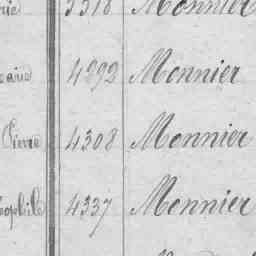 3318 Monnier
4292 Monnier
Pierre 4308 Monnier
4337 Monnier